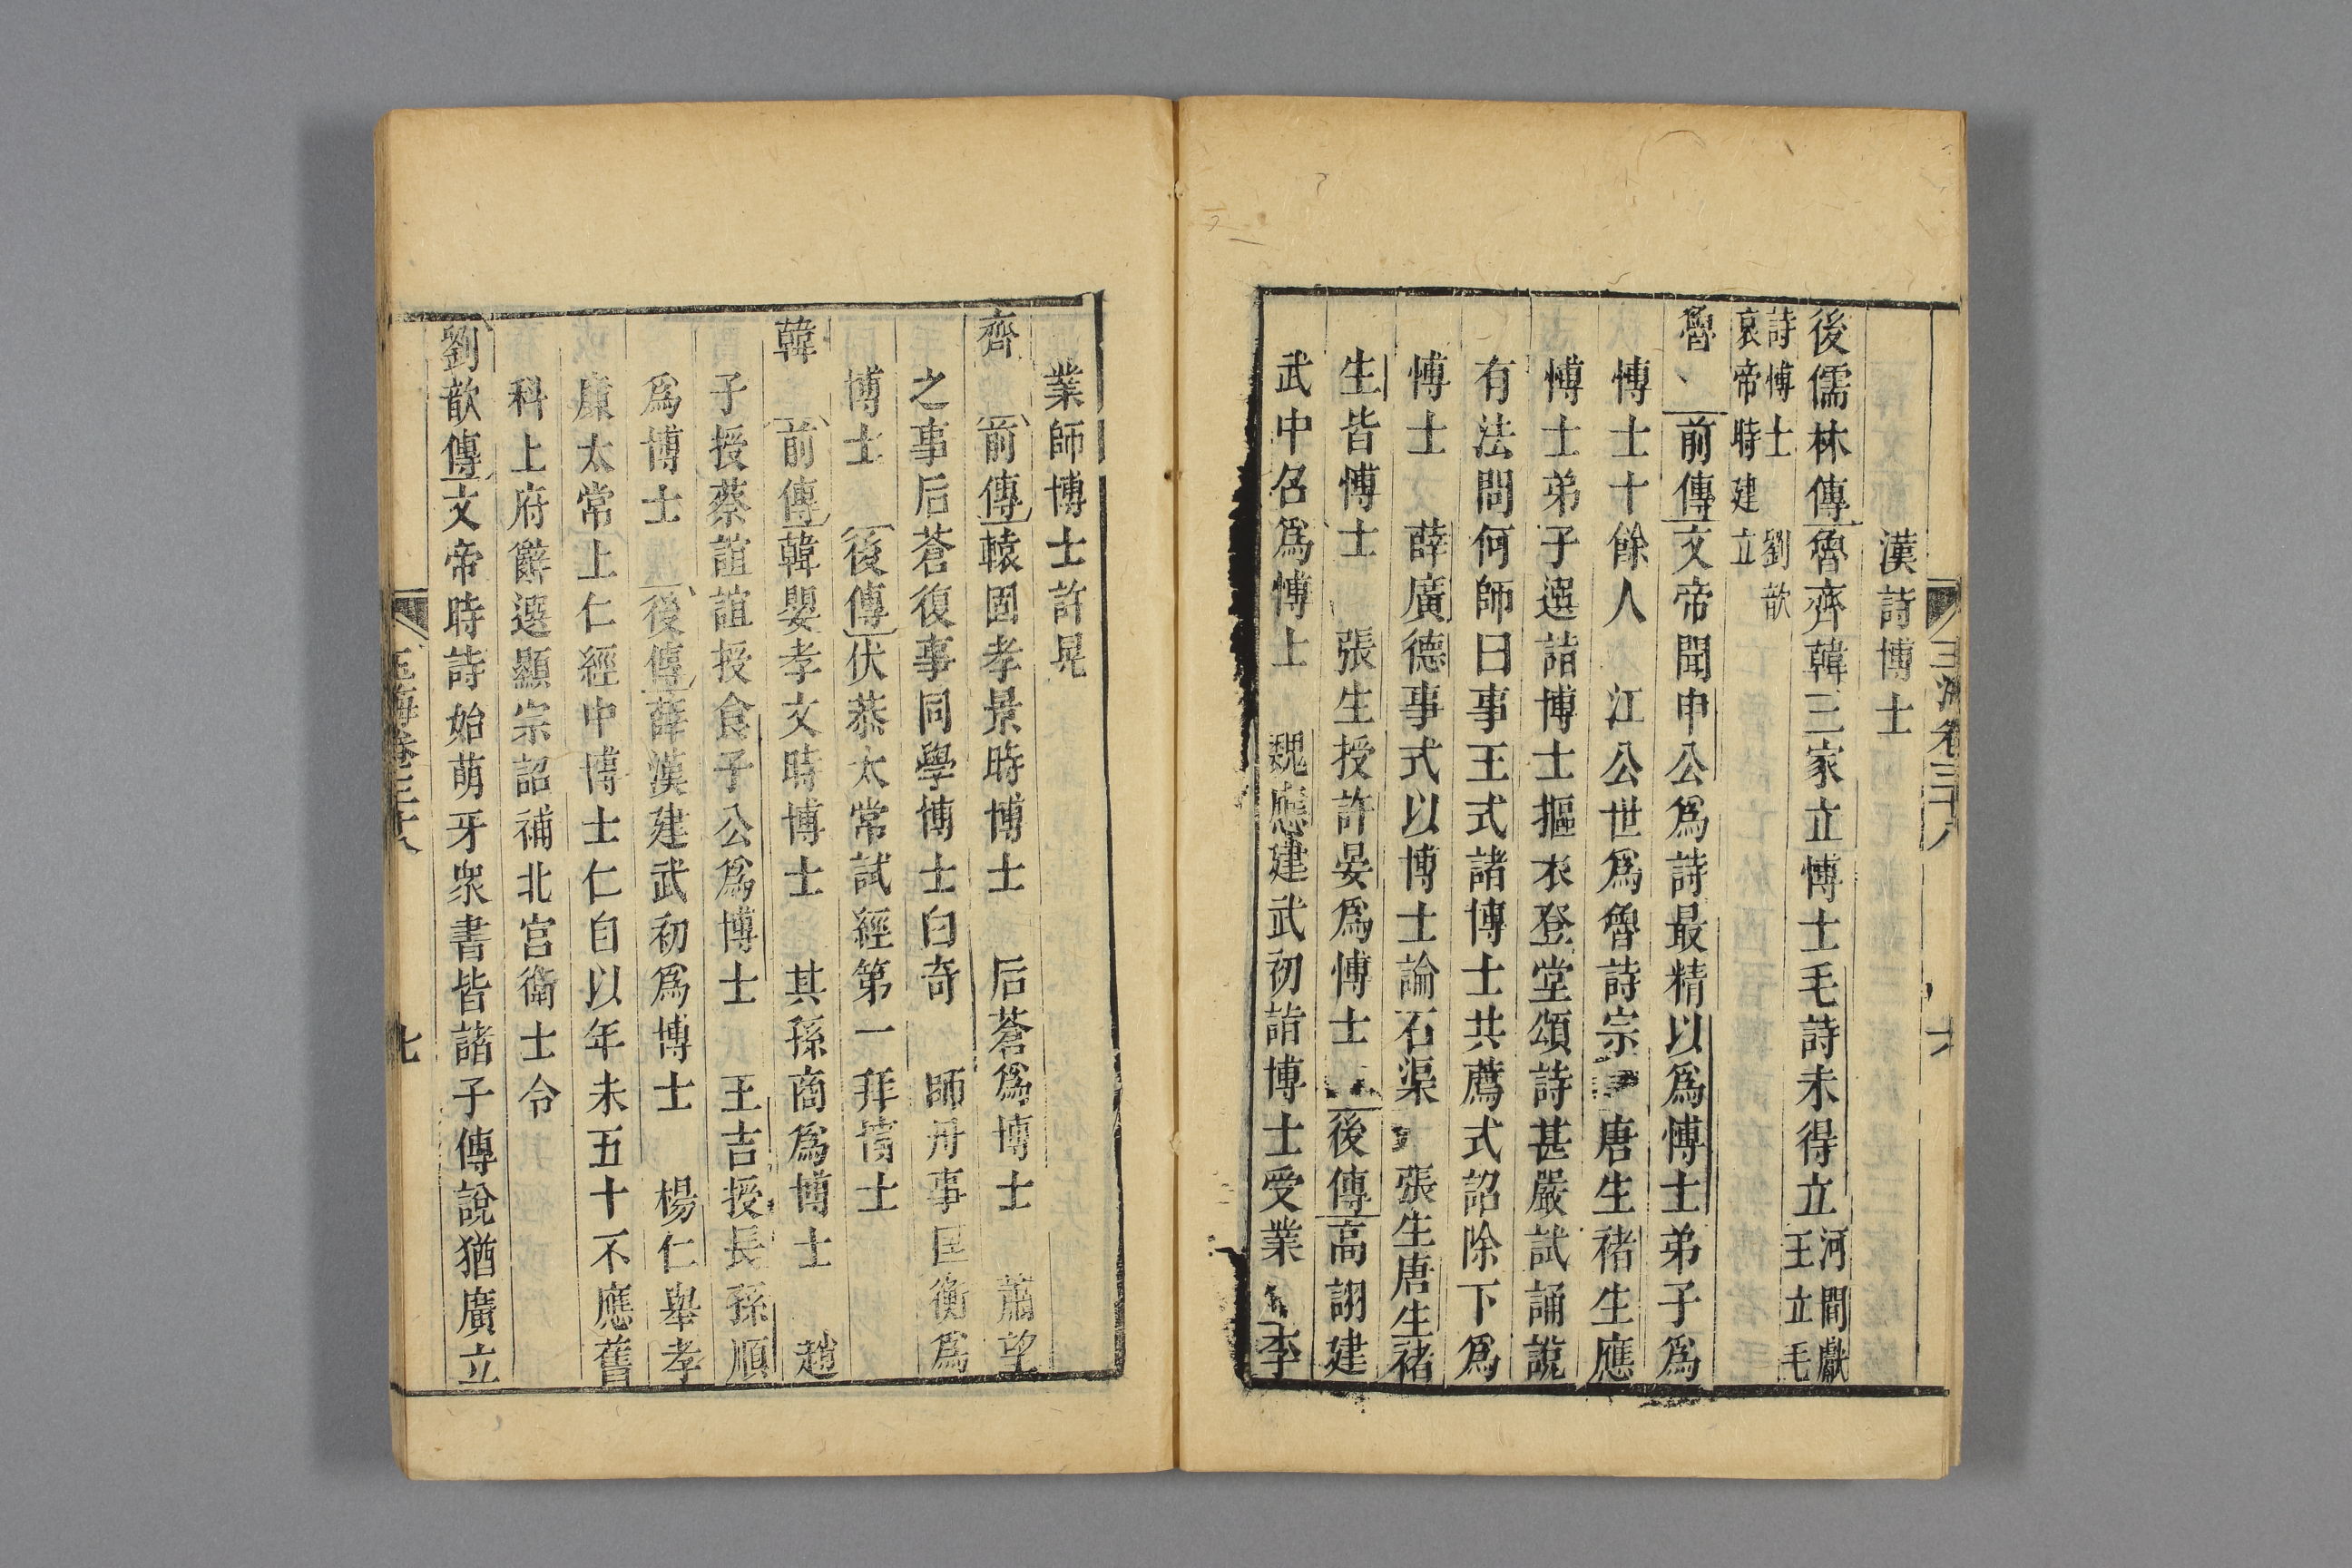 漢詩博士
後儒林傳魯齊韓三家立博士毛詩未得立河間獻王立毛
詩博士劉歆哀帝時建立
魯前傳文帝聞申公爲詩最精以爲博士弟子爲
博士十餘人江公世爲魯詩宗唐生褚生應
博士弟子選詣博士摳衣登堂頌詩甚嚴試誦說
有法問何師曰事王式諸博士共薦式詔除下爲
博士薛廣德事式以博士論石渠張生唐生褚
生皆博士張生授許晏爲博士後傳高詡建
武中召爲博士魏應建武初詣博士受業李
玉海卷三十八
六
業師博士許晃
齊前傳轅固孝景時博士后蒼爲博士蕭望
之事后蒼復事同學博士白奇師丹事匡衡爲
博士後傳伏恭太常試經第一拜博士
韓前傳韓嬰孝文時博士其孫商爲博士趙
子授蔡誼誼授食子公爲博士王吉授長孫順
爲博士後傳薛漢建武初爲博士楊仁舉孝
廉太常上仁經中博士仁自以年未五十不應舊
科上府辭選顯宗詔補北宮衛士令
劉歆傳文帝時詩始萌牙眾書皆諸子傳說猶廣立
玉海卷三十八
七